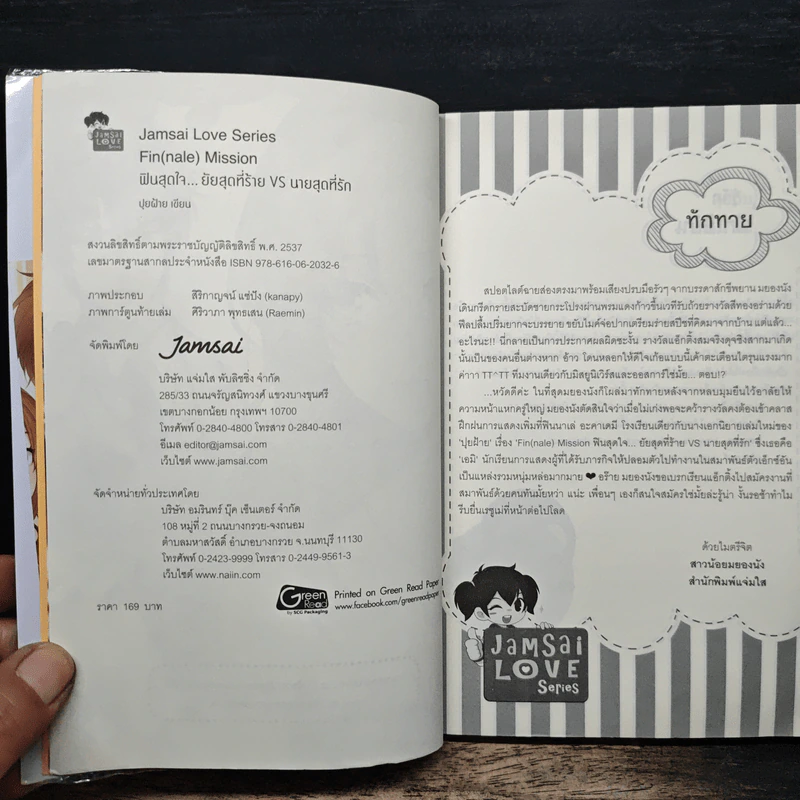 JAMSAI
LOVE
Series
Jamsai Love Series
Fin(nale) Mission
ฟินสุดใจ... ยัยสุดที่ร้าย VS นายสุดที่รัก
ปุยฝ้าย เขียน
สงวนลิขสิทธิ์ตามพระราชบัญญัติลิขสิทธิ์ พ.ศ. 2537
เลขมาตรฐานสากลประจำหนังสือ ISBN 978-616-06-2032-6
ภาพประกอบ สิริกาญจน์ แซ่ปัง (kanapy)
ภาพการ์ตูนท้ายเล่ม ศิริวาภา พุทธเสน (Raemin)
จัดพิมพ์โดย Jamsai
บริษัท แจ่มใส พับลิชชิ่ง จำกัด
285/33 ถนนจรัญสนิทวงศ์ แขวงบางขุนศรี
เขตบางกอกน้อย กรุงเทพฯ 10700
โทรศัพท์ 0-2840-4800 โทรสาร 0-2840-4801
อีเมล editor@jamsai.com
เว็บไซต์ www.jamsai.com
จัดจำหน่ายทั่วประเทศโดย
บริษัท อมรินทร์ บุ๊ค เซ็นเตอร์ จำกัด
108 หมู่ที่ 2 ถนนบางกรวย-จงถนอม
ตำบลมหาสวัสดิ์ อำเภอบางกรวย จ.นนทบุรี 11130
โทรศัพท์ 0-2423-9999 โทรสาร 0-2449-9561-3
เว็บไซต์ www.naiin.com
ราคา 169 บาท
Green
Read
by SCG Packaging
Printed on Green Read Paper
www.facebook.com/greenreadpaper
ทักทาย
สปอตไลต์ฉายส่องตรงมาพร้อมเสียงปรบมือรัวๆ จากบรรดาสักขีพยาน มยองนัง
เดินกรีดกรายสะบัดชายกระโปรงผ่านพรมแดงก้าวขึ้นเวทีรับถ้วยรางวัลสีทองอร่ามด้วย
ฟีลปลื้มปริ่มยากจะบรรยาย ขยับไมค์จ่อปากเตรียมร่ายสปีชที่คิดมาจากบ้าน แต่แล้ว...
อะไรนะ!! นี่กลายเป็นการประกาศผลผิดซะงั้น รางวัลแอ็กติ้งสมจริงดุจซิงสากมาเกิด
นั้นเป็นของคนอื่นต่างหาก อ้าว โดนหลอกให้ดีใจเก้อแบบนี้เค้าตะเตือนไตรุนแรงมาก
ค่าาา TT^TT ทีมงานเดียวกับมิสยูนิเวิร์สและออสการ์ใช่มั้ย... ตอบ!?
...หวัดดีค่ะ ในที่สุดมยองนังก็โผล่มาทักทายหลังจากหลบมุมยืนไว้อาลัยให้
ความหน้าแหกครู่ใหญ่ มยองนังตัดสินใจว่าเมื่อไม่เก่งพอจะคว้ารางวัลคงต้องเข้าคลาส
ฝึกฝนการแสดงเพิ่มที่ฟินนาเล่ อะคาเดมี โรงเรียนเดียวกับนางเอกนิยายเล่มใหม่ของ
'ปุยฝ้าย' เรื่อง 'Fin(nale) Mission ฟินสุดใจ... ยัยสุดที่ร้าย VS นายสุดที่รัก' ซึ่งเธอคือ
'เอมิ' นักเรียนการแสดงผู้ที่ได้รับภารกิจให้ปลอมตัวไปทำงานในสมาพันธ์ตัวเอ็กซ์อัน
เป็นแหล่งรวมหนุ่มหล่อมากมาย ❤ อร๊าย มยองนังขอเบรกเรียนแอ็กติ้งไปสมัครงานที่
สมาพันธ์ด้วยคนทันมั้ยหว่า แน่ะ เพื่อนๆ เองก็สนใจสมัครใช่มั้ยล่ะรู้น่า งั้นรอช้าทำไม
รีบยื่นเรซูเม่ที่หน้าต่อไปโลด
ด้วยไมตรีจิต
สาวน้อยมยองนัง
สำนักพิมพ์แจ่มใส
JAMSAI
LOVE
Series